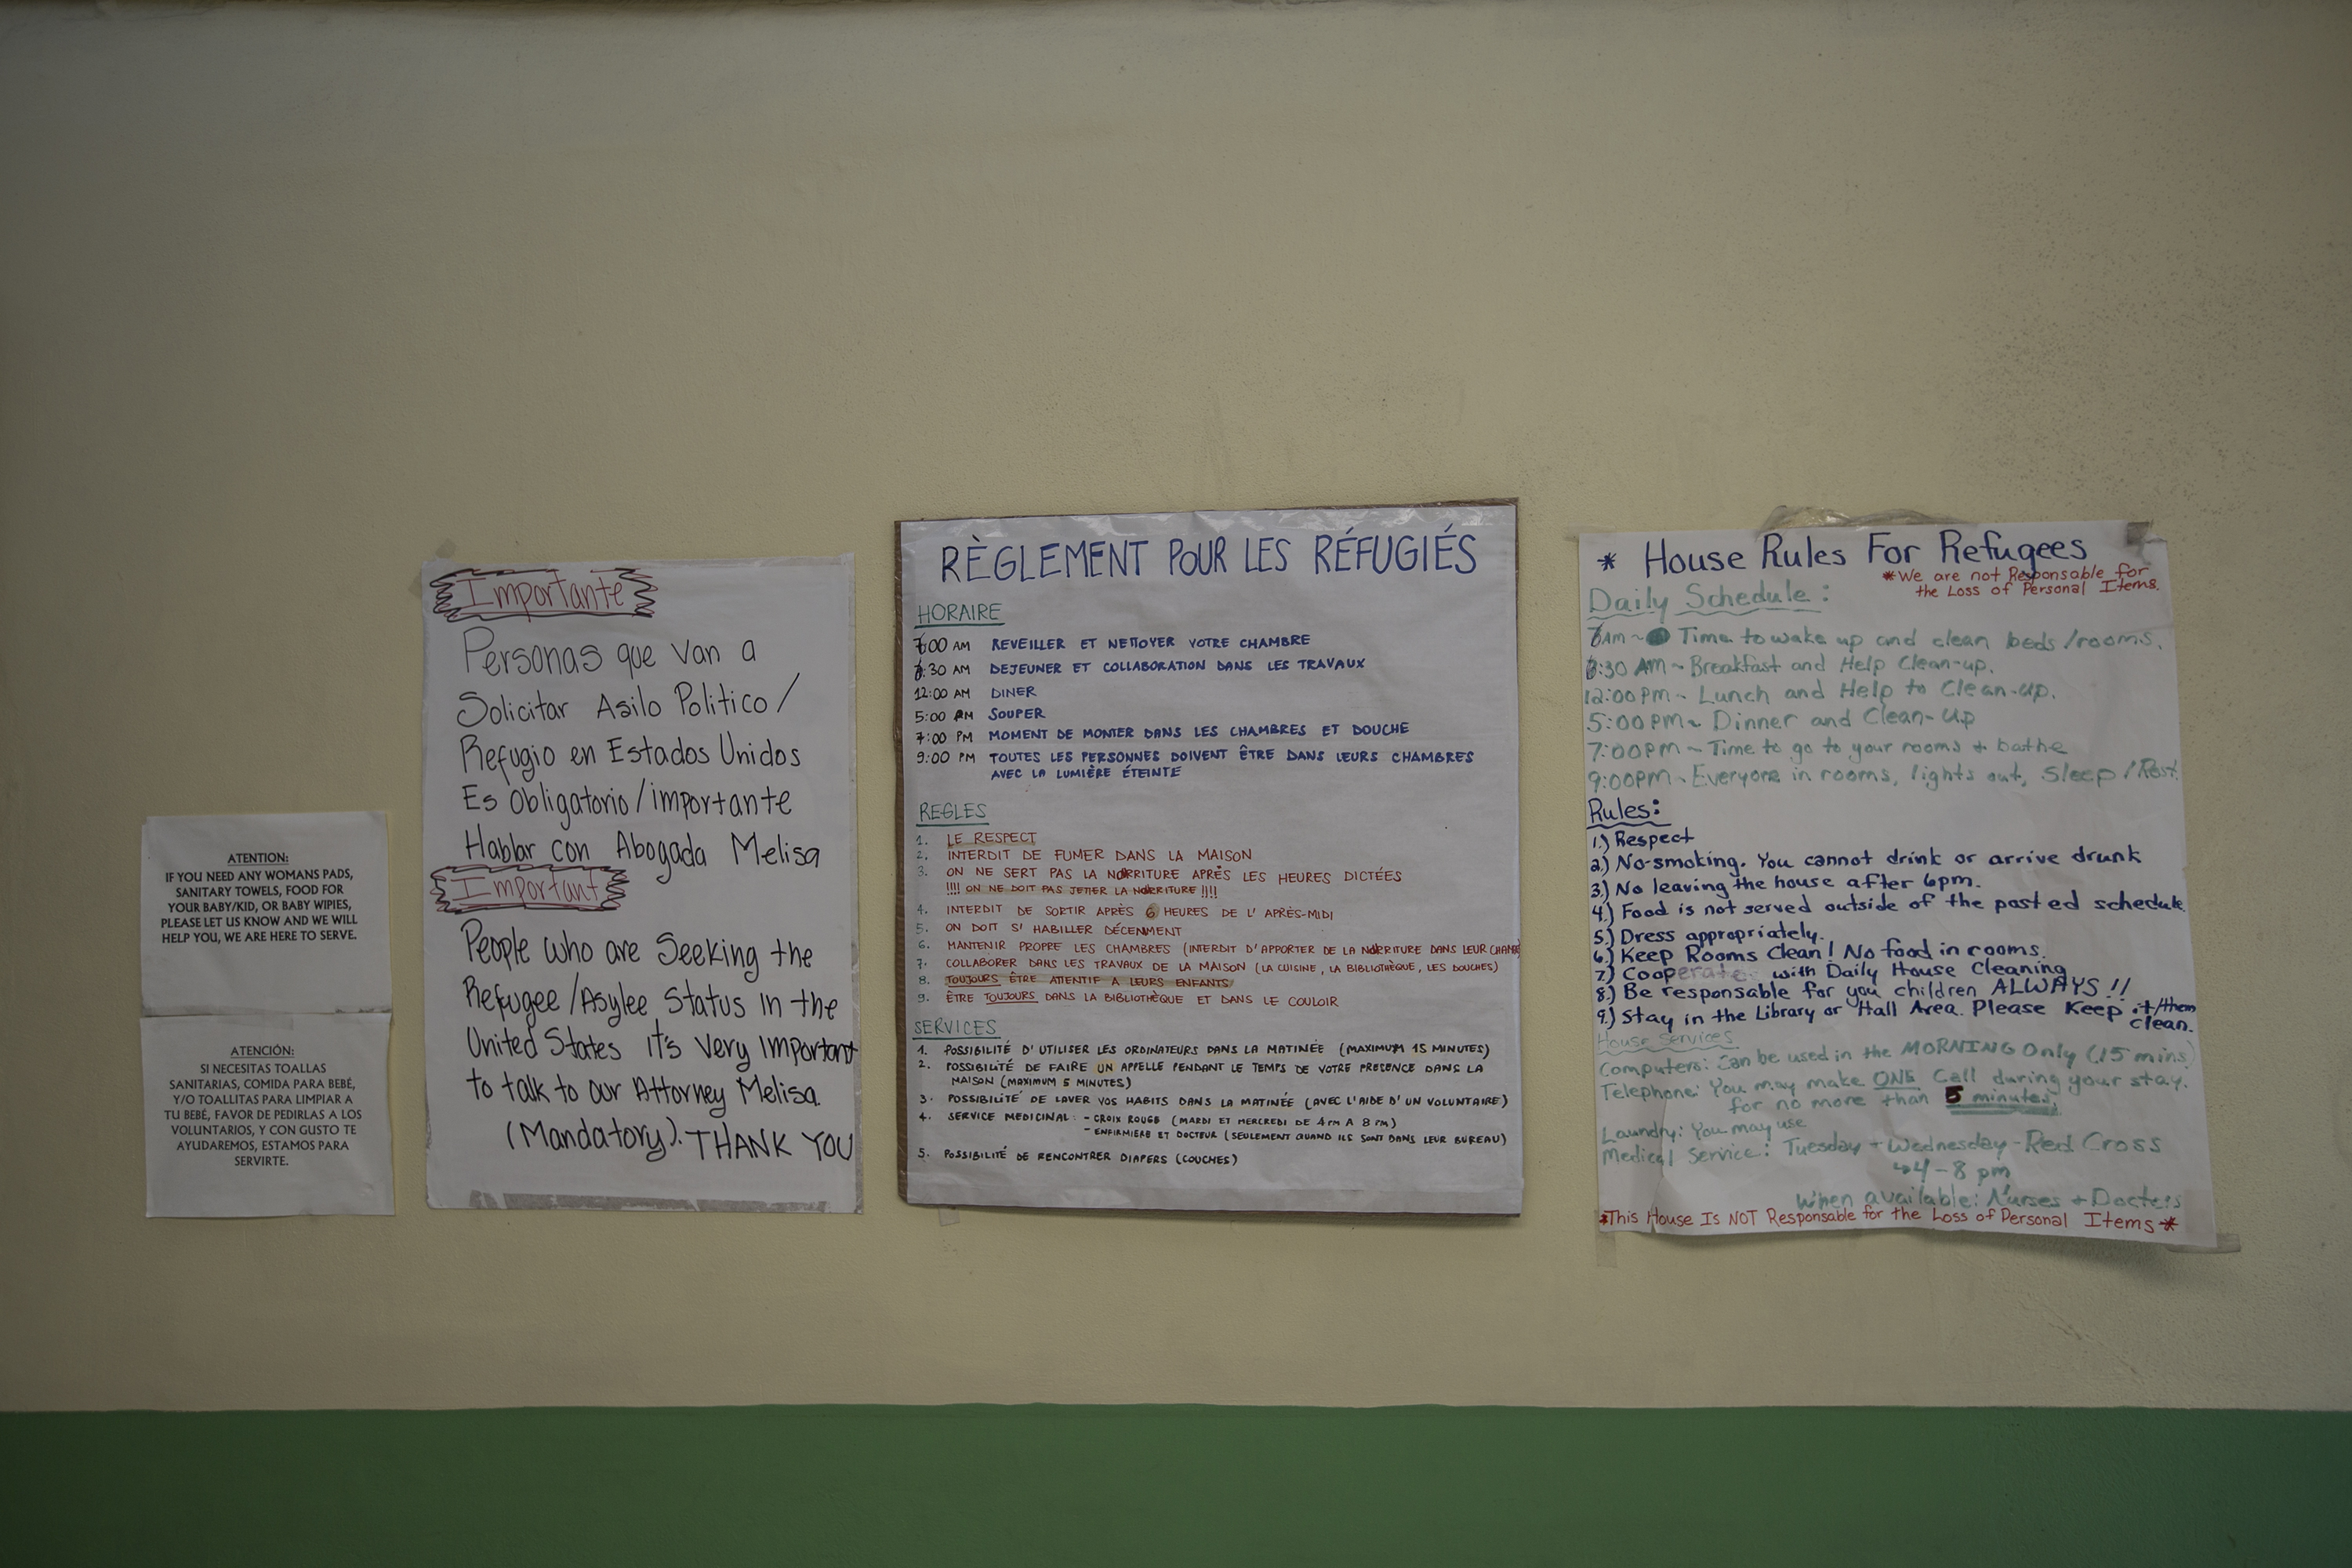 ATENTION:
IF YOU NEED ANY WOMANS PADS,
SANITARY TOWELS, FOOD FOR
YOUR BABY/KID, OR BABY WIPIES,
PLEASE LET US KNOW AND WE WILL
HELP YOU, WE ARE HERE TO SERVE.
ATENCIÓN:
SI NECESITAS TOALLAS
SANITARIAS, COMIDA PARA BEBÉ,
Y/O TOALLITAS PARA LIMPIAR A
TU BEBÉ, FAVOR DE PEDIRLAS A LOS
VOLUNTARIOS, Y CON GUSTO TE
AYUDAREMOS, ESTAMOS PARA
SERVIRTE.
Importante
Personas que van a
Solicitar Asilo Politico /
Refugio en Estados Unidos
Es Obligatorio/importante
Hablar con Abogada Melisa
Important
People who are Seeking the
Refugee/Asylee Status in the
United States it's Very Important
to talk to our Attorney Melisa.
(Mandatory). THANK YOU
RÈGLEMENT POUR LES RÉFUGIÉS
HORAIRE
7:00 AM REVEILLER ET NETTOYER VOTRE CHAMBRE
:30 AM DEJEUNER ET COLLABORATION DANS LES TRAVAUX
12:00 AM DINER
5:00 PM SOUPER
7:00 PM MOMENT DE MONTER DANS LES CHAMBRES ET DOUCHE
9:00 PM TOUTES LES PERSONNES DOIVENT ÊTRE DANS LEURS CHAMBRES
AVEC LA LUMIÈRE ÉTEINTE
REGLES
1. LE RESPECT
2. INTERDIT DE FUMER DANS LA MAISON
3. ON NE SERT PAS LA NORRITURE APRÈS LES HEURES DICTÉES
!!!! ON NE DOIT PAS JETTER LA NORRITURE !!!!
4. INTERDIT DE SORTIR APRÈS 6 HEURES DE L' APRÈS-MIDI
5. ON DOIT S' HABILLER DÉCEMMENT
6. MANTENIR PROPRE LES CHAMBRES (INTERDIT D'APPORTER DE LA NORRITURE DANS LEUR CHAMB
7. COLLABORER DANS LES TRAVAUX DE LA MAISON (LA CUISINE, LA BIBLIOTHÈQUE, LES DOUCHES)
8. TOUJOURS ÊTRE ATTENTIF A LEURS ENFANTS
9. ÊTRE TOUJOURS DANS LA BIBLIOTHÈQUE ET DANS LE COULOIR
SERVICES
1. POSSIBILITÉ D'UTILISER LES ORDINATEURS DANS LA MATINÉE (MAXIMUM 15 MINUTES)
2. POSSIBILITÉ DE FAIRE UN APPELLE PENDANT LE TEMPS DE VOTRE PRESENCE DANS LA
MAISON (MAXIMUM 5 MINUTES)
3. POSSIBILITÉ DE LAVER VOS HABITS DANS LA MATINÉE (AVEC L'AIDE D'UN VOLUNTAIRE)
4. SERVICE MEDICINAL: - CROIX ROUGE (MARDI ET MERCREDI DE 4PM A 8 PM)
- ENFIRMIERE ET DOCTEUR (SEULEMENT QUAND ILS SONT DANS LEUR BUREAU)
5. POSSIBILITÉ DE RENCONTRER DIAPERS (COUCHES)
* House Rules For Refugees
*We are not Responsible for
the Loss of Personal Items.
Daily Schedule:
7AM ~ Time to wake up and clean beds/rooms.
8:30 AM ~ Breakfast and Help Clean-up.
12:00PM ~ Lunch and Help to Clean-up.
5:00PM ~ Dinner and Clean-Up
7:00PM ~ Time to go to your rooms + bathe
9:00PM ~ Everyone in rooms, lights out, Sleep/Rest.
Rules:
1.) Respect
2.) No-smoking. You cannot drink or arrive drunk
3.) No leaving the house after 6pm.
4.) Food is not served outside of the posted schedule.
5.) Dress appropriately.
6.) Keep Rooms Clean! No food in rooms.
7.) Cooperate with Daily House Cleaning
8.) Be responsible for you children ALWAYS!!
9.) Stay in the Library or Hall Area. Please Keep it/them
clean.
House Services
Computers: Can be used in the MORNING Only (15 mins)
Telephone: You may make ONE Call during your stay.
for no more than 5 minutes.
Laundry: You may use
Medical Service: Tuesday + Wednesday - Red Cross
↳4-8 pm
When available: Nurses + Doctors
*This House Is NOT Responsible for the Loss of Personal Items*